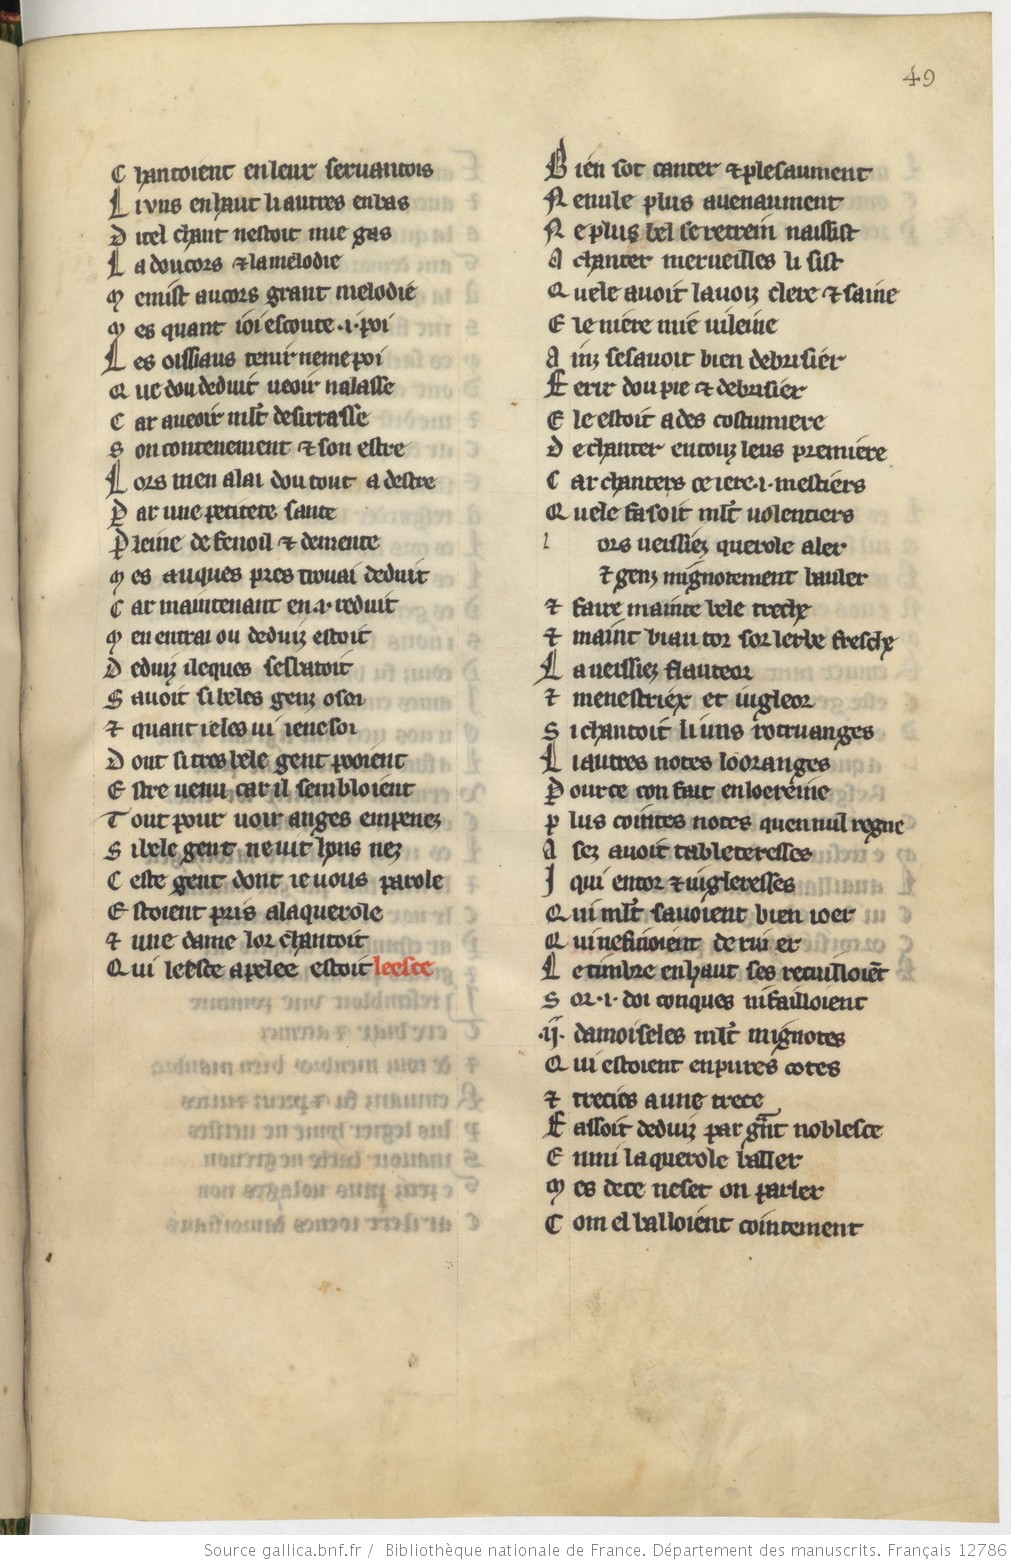 49
C hantoient en leur seruantois
L i vns en haut li autres en bas
D itel chant nestoit mie gas
L a doucors & la melodie
M emist au cors grant melodie
M es quant ioi escoute .i. poi
L es oissiaus tenir neme poi
Q ue dou deduit ueoir nalasse
C ar a ueoir mlt desirrasse
S on contenement & son estre
L ors men alai dou tout a destre
P ar une petitete sante
P leine de fenoil & de mente
M es auques pres trouai deduit
C ar maintenant en .i. reduit
M en entrai ou deduiz estoit
D eduiz ileques sesbatoit
S auoit si beles genz o soi
& quant ie les ui ie ne soi
D ont si tres bele gent pooient
E stre uenu car il sembloient
T out pour uoir anges empenez
S i bele gent ne uit hons nez
C este gent dont ie uous parole
E stoient pris a la querole
& une dame lor chantoit
Q ui leesce apelee estoit leesce
B ien sot canter & plesaument
N e nule plus auenaument
N e plus bel se retrein naissist
A chanter merueilles li sist
Q uele auoit la uoiz clere & saine
E le niere mie uileine
A inz se sauoit bien debrisier
F erir dou pie & debrisier
E le estoit ades costumiere
D e chanter en touz leus premiere
C ar chanters ce iere .i. mestiers
Q uele fasoit mlt uolentiers
l ors ueissiez querole aler
& genz mignotement bauler
& faire mainte bele tresche
& maint biau tor sor lerbe fresche
L a ueissiez flauteor
& menestriex et iugleor
S i chantoit li uns rotruanges
L i autres notes looranges
P our ce con fait en loereine
P lus cointes notes quen nul regne
A sez auoit tableteresses
I qui entor & iugleresses
Q ui mlt sauoient bien ioer
Q ui ne finoient de ruier
L e timbre en haut ses recuilloient
S or .i. doi conques ni failloient
.ij. damoiseles mlt mignotes
Q ui estoient en pures cotes
& trecies a une trece
F assoit deduiz par gnt noblesce
E nmi la querole baller
M es de ce ne fet on parler
C om el balloient cointement
Source gallica.bnf.fr / Bibliothèque nationale de France. Département des manuscrits. Français 12786